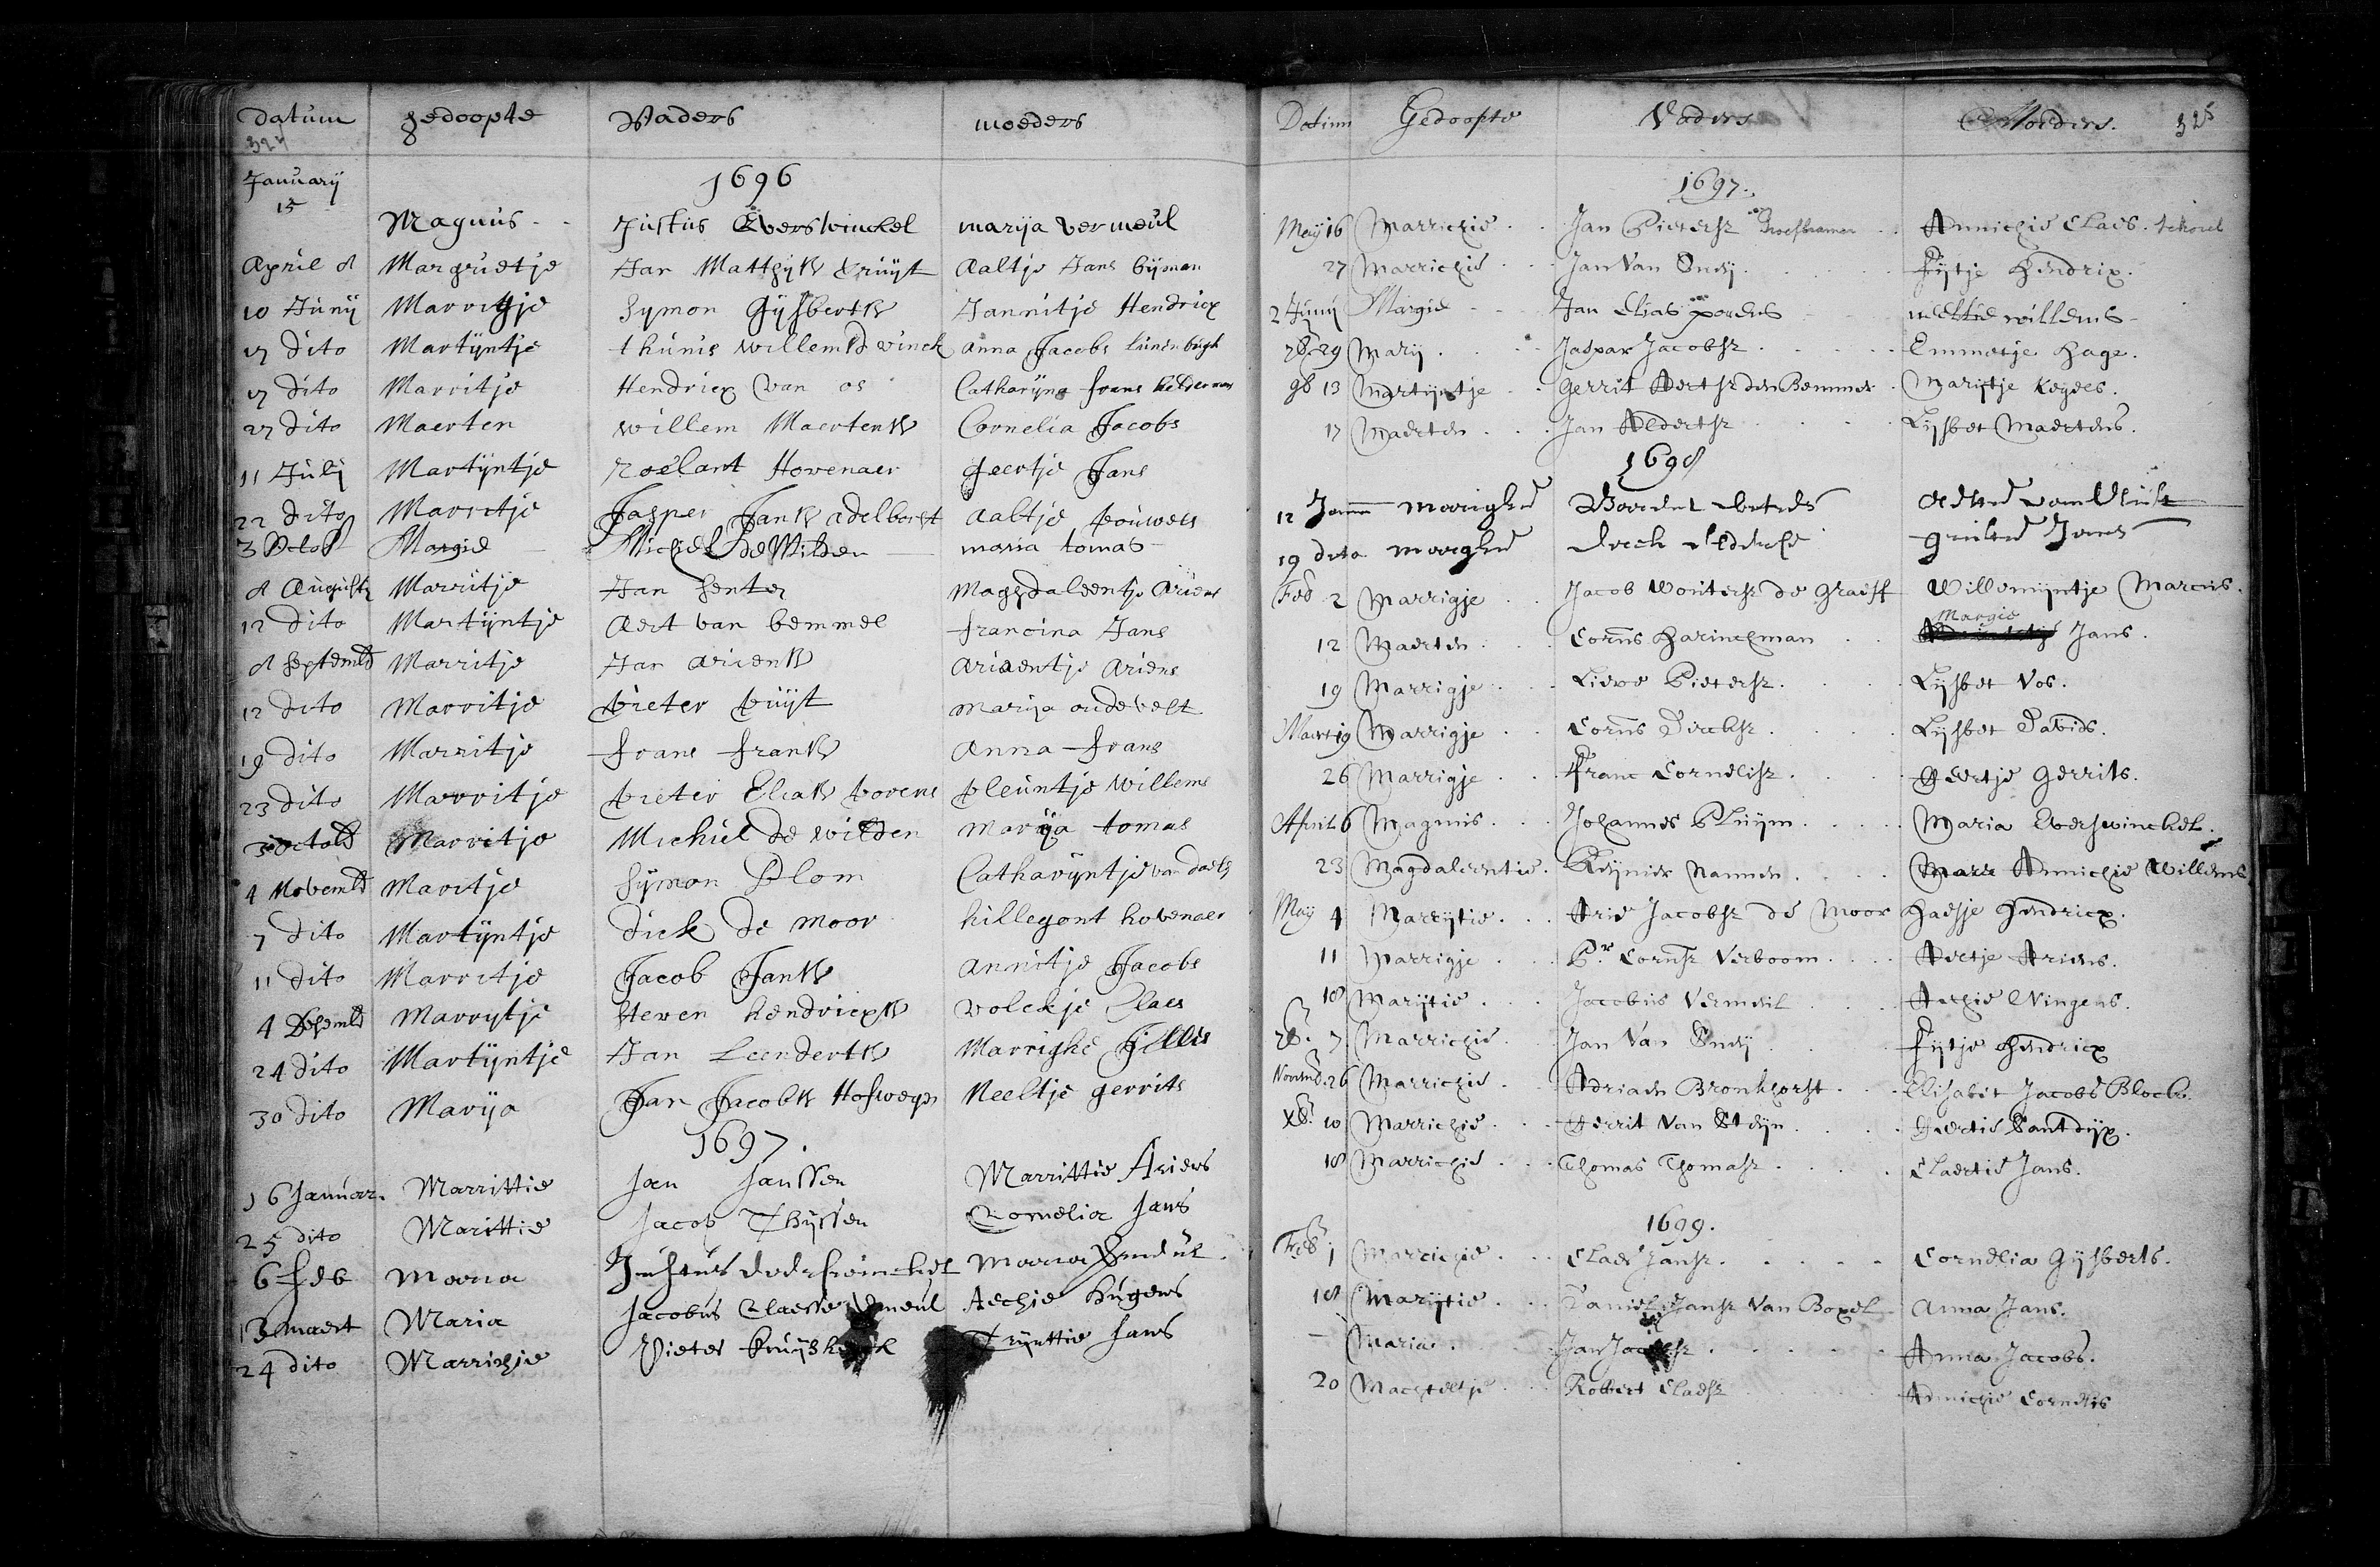 datum gedoopte Vaders moeders
324
January 1696
15 Magnus Justus Everswinckel marija vermeul
April 8 Margrietje Jan Matthijsz Aaltje Jans bijman
10 Junij Marrigje Symon Gijsbertsz Jannitje Hendricx
17 dito Martijntje thunis willemse vinck anna Jacobs
17 dito Marritje Hendricx van os Catharijna frans
27 dito Maerten willem Maertensz Cornelia Jacobs
11 Julij Martijntje roelant Hovenaer geertje Jans
22 dito Marritje Jasper Jansz adelborst aaltje pouwels
3 Octob Margie Michiel de Wilden maria tomas
8 Augusti Marritje Jan Magdaleentje Ariens
12 dito Martijntje Aert van bemmel francina Jans
8 Septemb Marritje Jan ariensz ariaentje Ariens
12 dito Marritje pieter marija oudevelt
19 dito Marritje frans fransz Anna frans
23 dito Marritje pieter Eliasz povens pleuntje willems
3 octob Marritje Michiel de wilden marija tomas
4 Novemb Maritje Sijmon Blom Catharijntje van
7 dito Martijntje dick de moor hillegont hovenaer
11 dito Marritje Jacob Jansz annitje Jacobs
4 Desemb Marrytje Steven hendricxsz volckje Claes
24 dito Martijntje Jan Leendertsz Marrighe Jillis
30 dito Marija Jan Jacobsz Neeltje gerrits
1697.
16 Januar. Marrittie Jan Janssen Marrittie Ariens
25 dito Marittie Jacob Thijssen Cornelia Jans
6 feb Maria Justus Everswinckel Maria
13 maert Maria Jacobus Claesse Vermeul Aechie Hugens
24 dito Marrichie Pieter Trijnttie Jans
Datum Gedoopte Vaders Moeders. 325
1697.
Meij 16 Marrichie Jan Pietersz Annichie Claes.
27 Marrichie Jan Van Fijtje Hendrix.
2 Junij Margie Jan Elias povens neeltie willems
7b. 29 Marij Jaspar Jacobsz Emmetje Hage.
9b 13 Martijntje Gerrit Aertsz den Bemmer Marijtje Keyses.
17 Maerten Jan Aldertsz Lijsbet Maertens.
1698
12 Janu marighe
19 dito marghe Jans
Feb 2 Marrigje Jacob Woutersz de Graeff Willemijntje Marcus.
Margie
12 Maerten Corns Harincman Jans.
19 Marrigje Lieve Pietersz. Lijsbet Vos.
Maert 19 Marrigje Corns Dircksz Lijsbet Davids.
26 Marrigje Franc Cornelisz. Geertje Gerrits.
April 6 Magnus Johannes Pluijm Maria Everswinckel.
23 Magdaleentie. Reijnier Nannen Annichie Willems
Meij 4 Marrijtie Arie Jacobsz de Moor Haesje Hendricx.
11 Marrigje Pr. Cornsz Verboom Aertje Ariens.
18 Marijtie Jacobus Vermeul Aechie Huigens.
7b. 7 Marrichie Jan Van Fijtje Hendricx
Novemb. 26 Marrichie Adriaen Bronkhorst Elisabet Jacobs Block.
Xb. 10 Marrichie Gerrit Van Steijn Geertie Santdijx.
18 Marrichie Thomas Thomasz Claertie Jans.
1699.
Feb 1 Marrichie Claes Jansz. Cornelia Gijsberts.
18 Marijtie Daniel Jansz Van Boxel Anna Jans.
Maria Jan Jacobsz Anna Jacobs.
20 Machteltje Robbert Claesz Annichie Cornelis